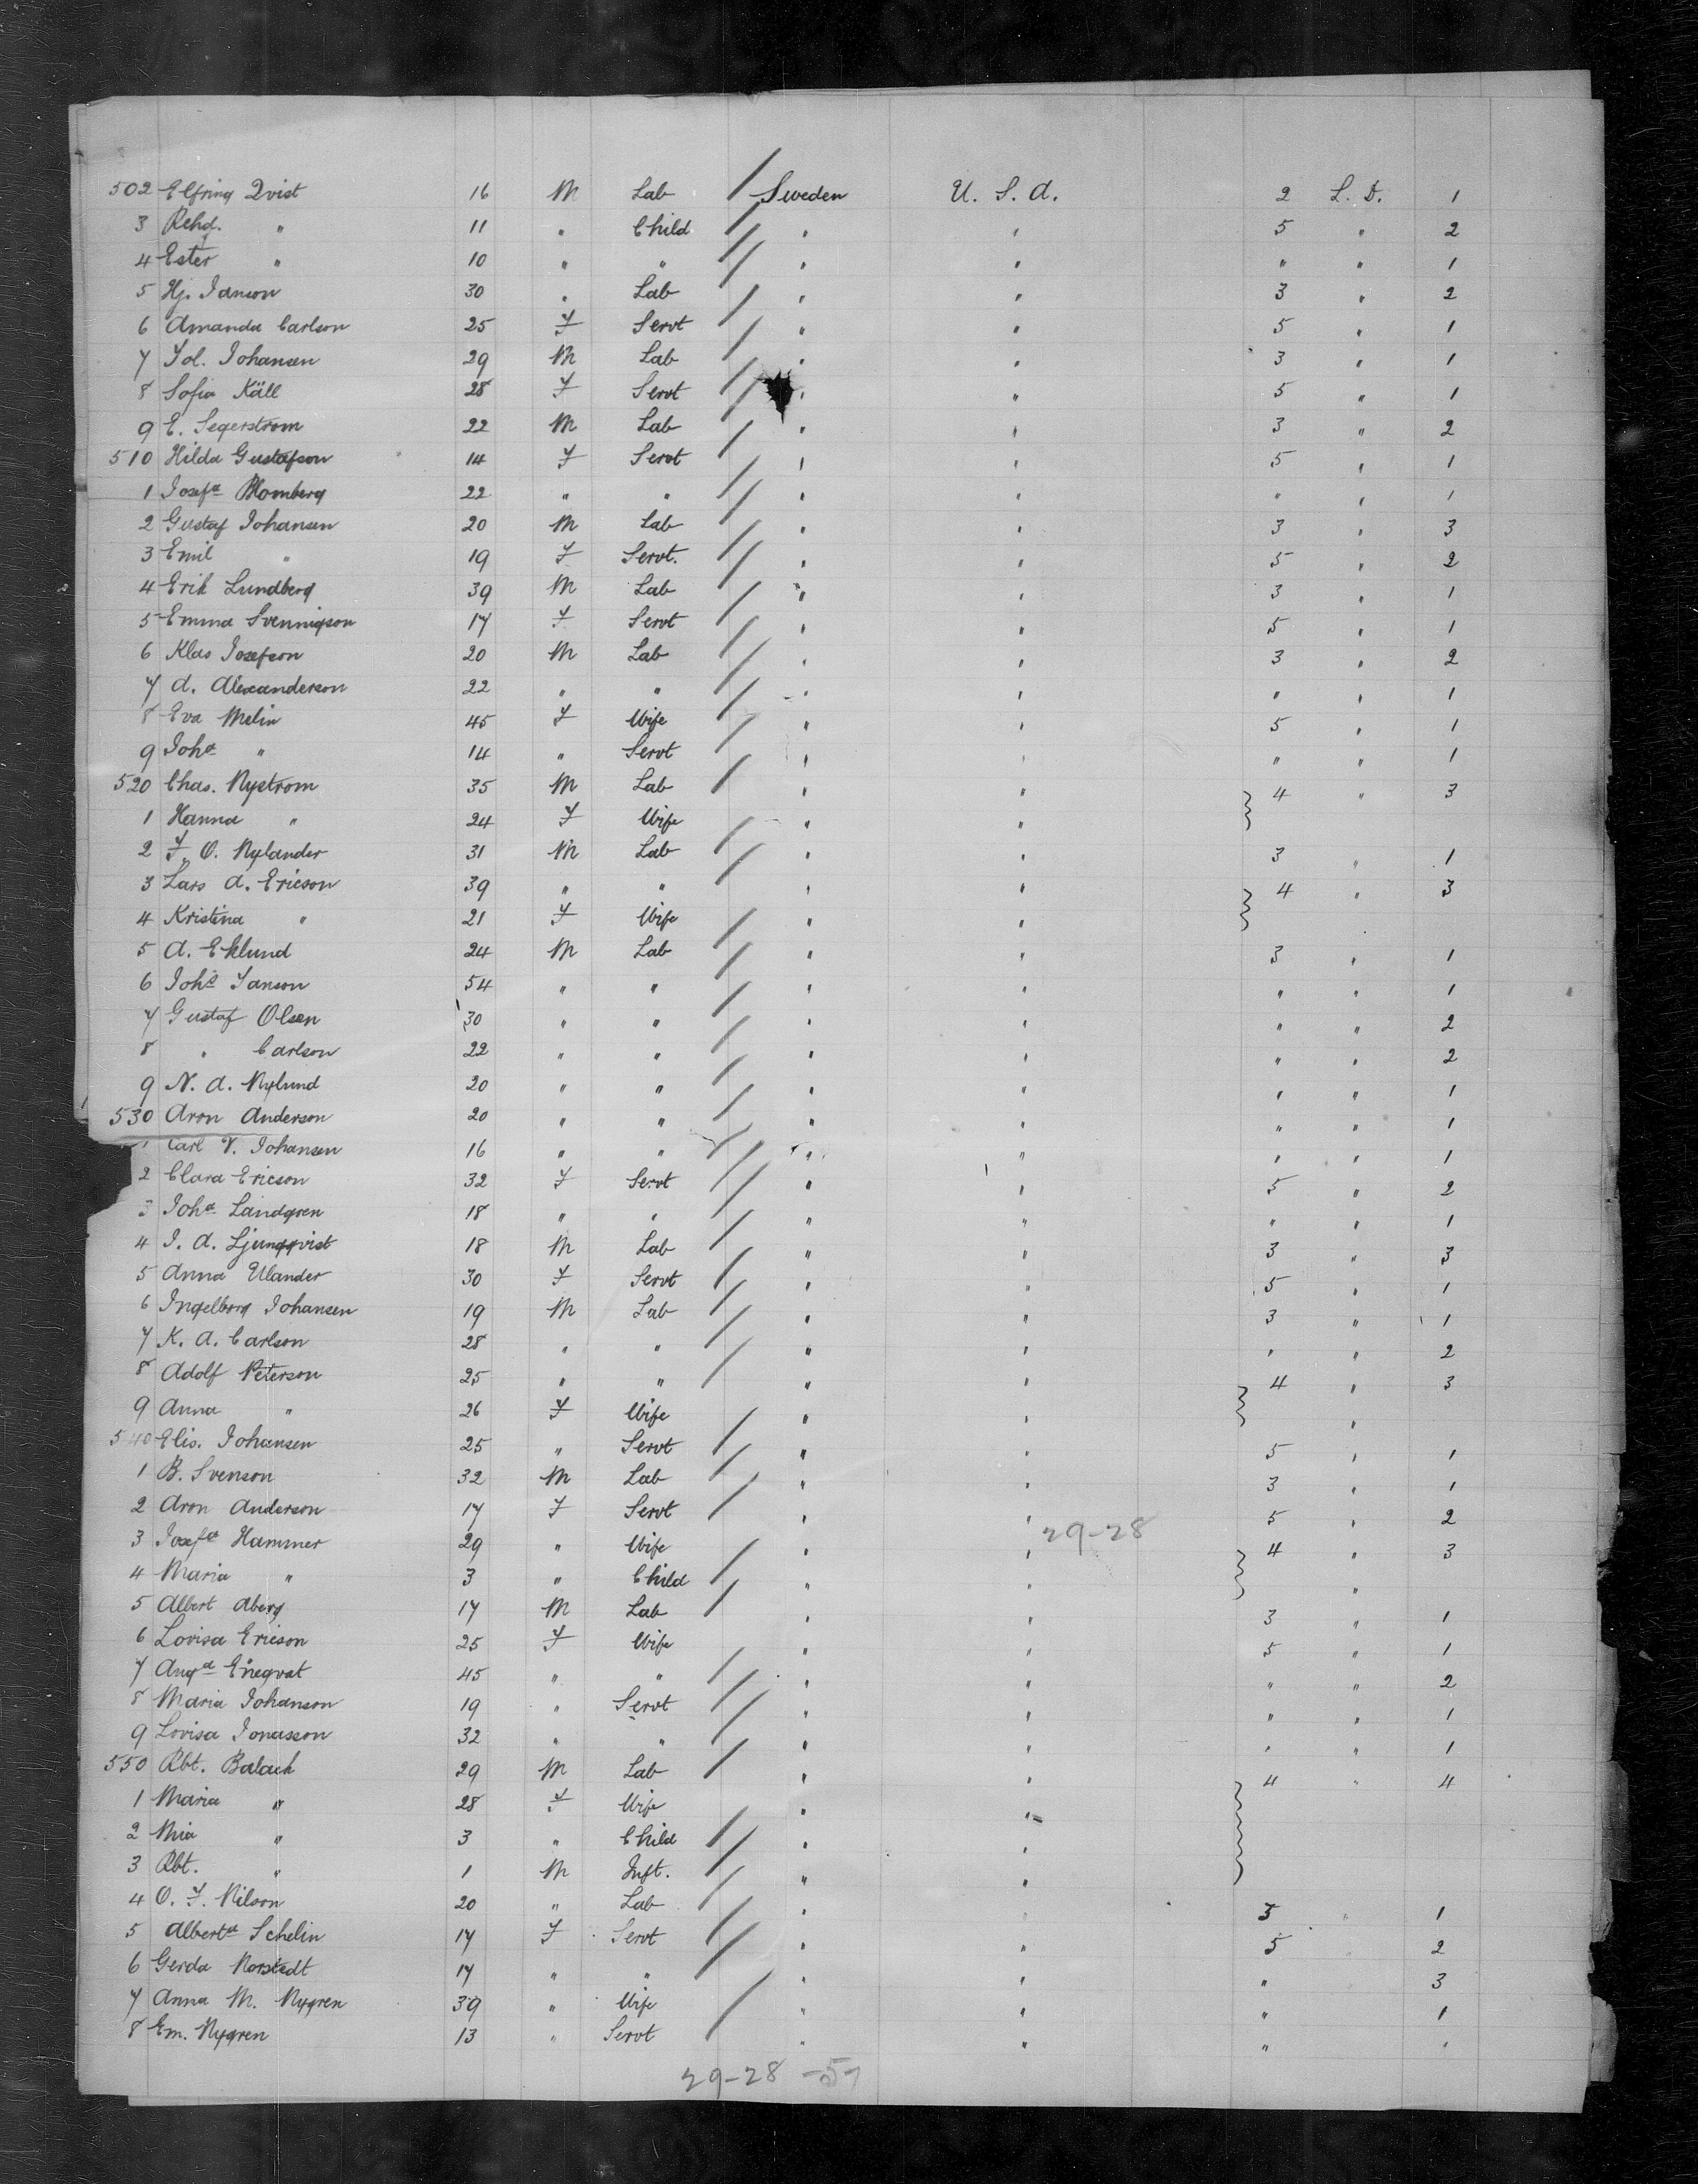 502 Elfring Qvist 16 M Lab Sweden U. S. A. 2 L. D. 1
3 Rchd. " 11 " Child " " 5 " 2
4 Ester " 10 " " " " " " 1
5 Hj. Janson 30 " Lab " " 3 " 2
6 Amanda Carlson 25 F Servt " " 5 " 1
7 Fol. Johansen 29 M Lab " " 3 " 1
8 Sofia Käll 28 F Servt " " 5 " 1
9 E. Segerstrom 22 M Lab " " 3 " 2
510 Hilda Gustafson 14 F Servt " " 5 " 1
1 Josefa Blomberg 22 " " " " " " 1
2 Gustaf Johansen 20 M Lab " " 3 " 3
3 Emil " 19 F Servt. " " 5 " 2
4 Erik Lundberg 39 M Lab " " 3 " 1
5 Emma Svennigson 17 F Servt " " 5 " 1
6 Klas Josefson 20 M Lab " " 3 " 2
7 A. Alexanderson 22 " " " " " " 1
8 Eva Melin 45 F Wife " " 5 " 1
9 Joha " 14 " Servt " " " " 1
520 Chas. Nystrom 35 M Lab " " 4 " 3
1 Hanna " 24 F Wife " "
2 F. O. Nylander 31 M Lab " " 3 " 1
3 Lars A. Ericson 39 " " " " 4 " 3
4 Kristina " 21 F Wife " "
5 A. Eklund 24 M Lab " " 3 " 1
6 Johs Janson 54 " " " " " " 1
7 Gustaf Olsen 30 " " " " " " 2
8 " Carlson 22 " " " " " " 2
9 N. A. Nylund 20 " " " " " " 1
530 Aron Anderson 20 " " " " " " 1
1 Carl V. Johansen 16 " " " " " " 1
2 Clara Ericson 32 F Servt " " 5 " 2
3 Joha Landgren 18 " " " " " " 1
4 J. A. Ljungqvist 18 M Lab " " 3 " 3
5 Anna Ulander 30 F Servt " " 5 " 1
6 Ingelborg Johansen 19 M Lab " " 3 " 1
7 K. A. Carlson 28 " " " " " " 2
8 Adolf Peterson 25 " " " " 4 " 3
9 Anna " 26 F Wife " " "
540 Elis. Johansen 25 " Servt " " 5 " 1
1 B. Svenson 32 M Lab " " 3 " 1
2 Aron Anderson 17 F Servt " " 5 " 2
29-28
3 Josefa Hammer 29 " Wife " " 4 " 3
4 Maria " 3 " Child " " "
5 Albert Aberg 17 M Lab " " 3 " 1
6 Lovisa Ericson 25 F Wife " " 5 " 1
7 Auga Eneqvat 45 " " " " " " 2
8 Maria Johanson 19 " Servt " " " " 1
9 Lovisa Jonasson 32 " " " " " " 1
550 Rbt. Balack 29 M Lab " " 4 " 4
1 Maria " 28 F Wife " "
2 Mia " 3 " Child " "
3 Rbt. " 1 M Inft. " "
4 O. F. Nilson 20 " Lab " " 3 " 1
5 Alberta Schelin 17 F Servt " " 5 2
6 Gerda Norstedt 17 " " " " " 3
7 Anna M. Nygren 39 " Wife " " " 1
8 Em. Nygren 13 " Servt " " " "
29-28 -5-